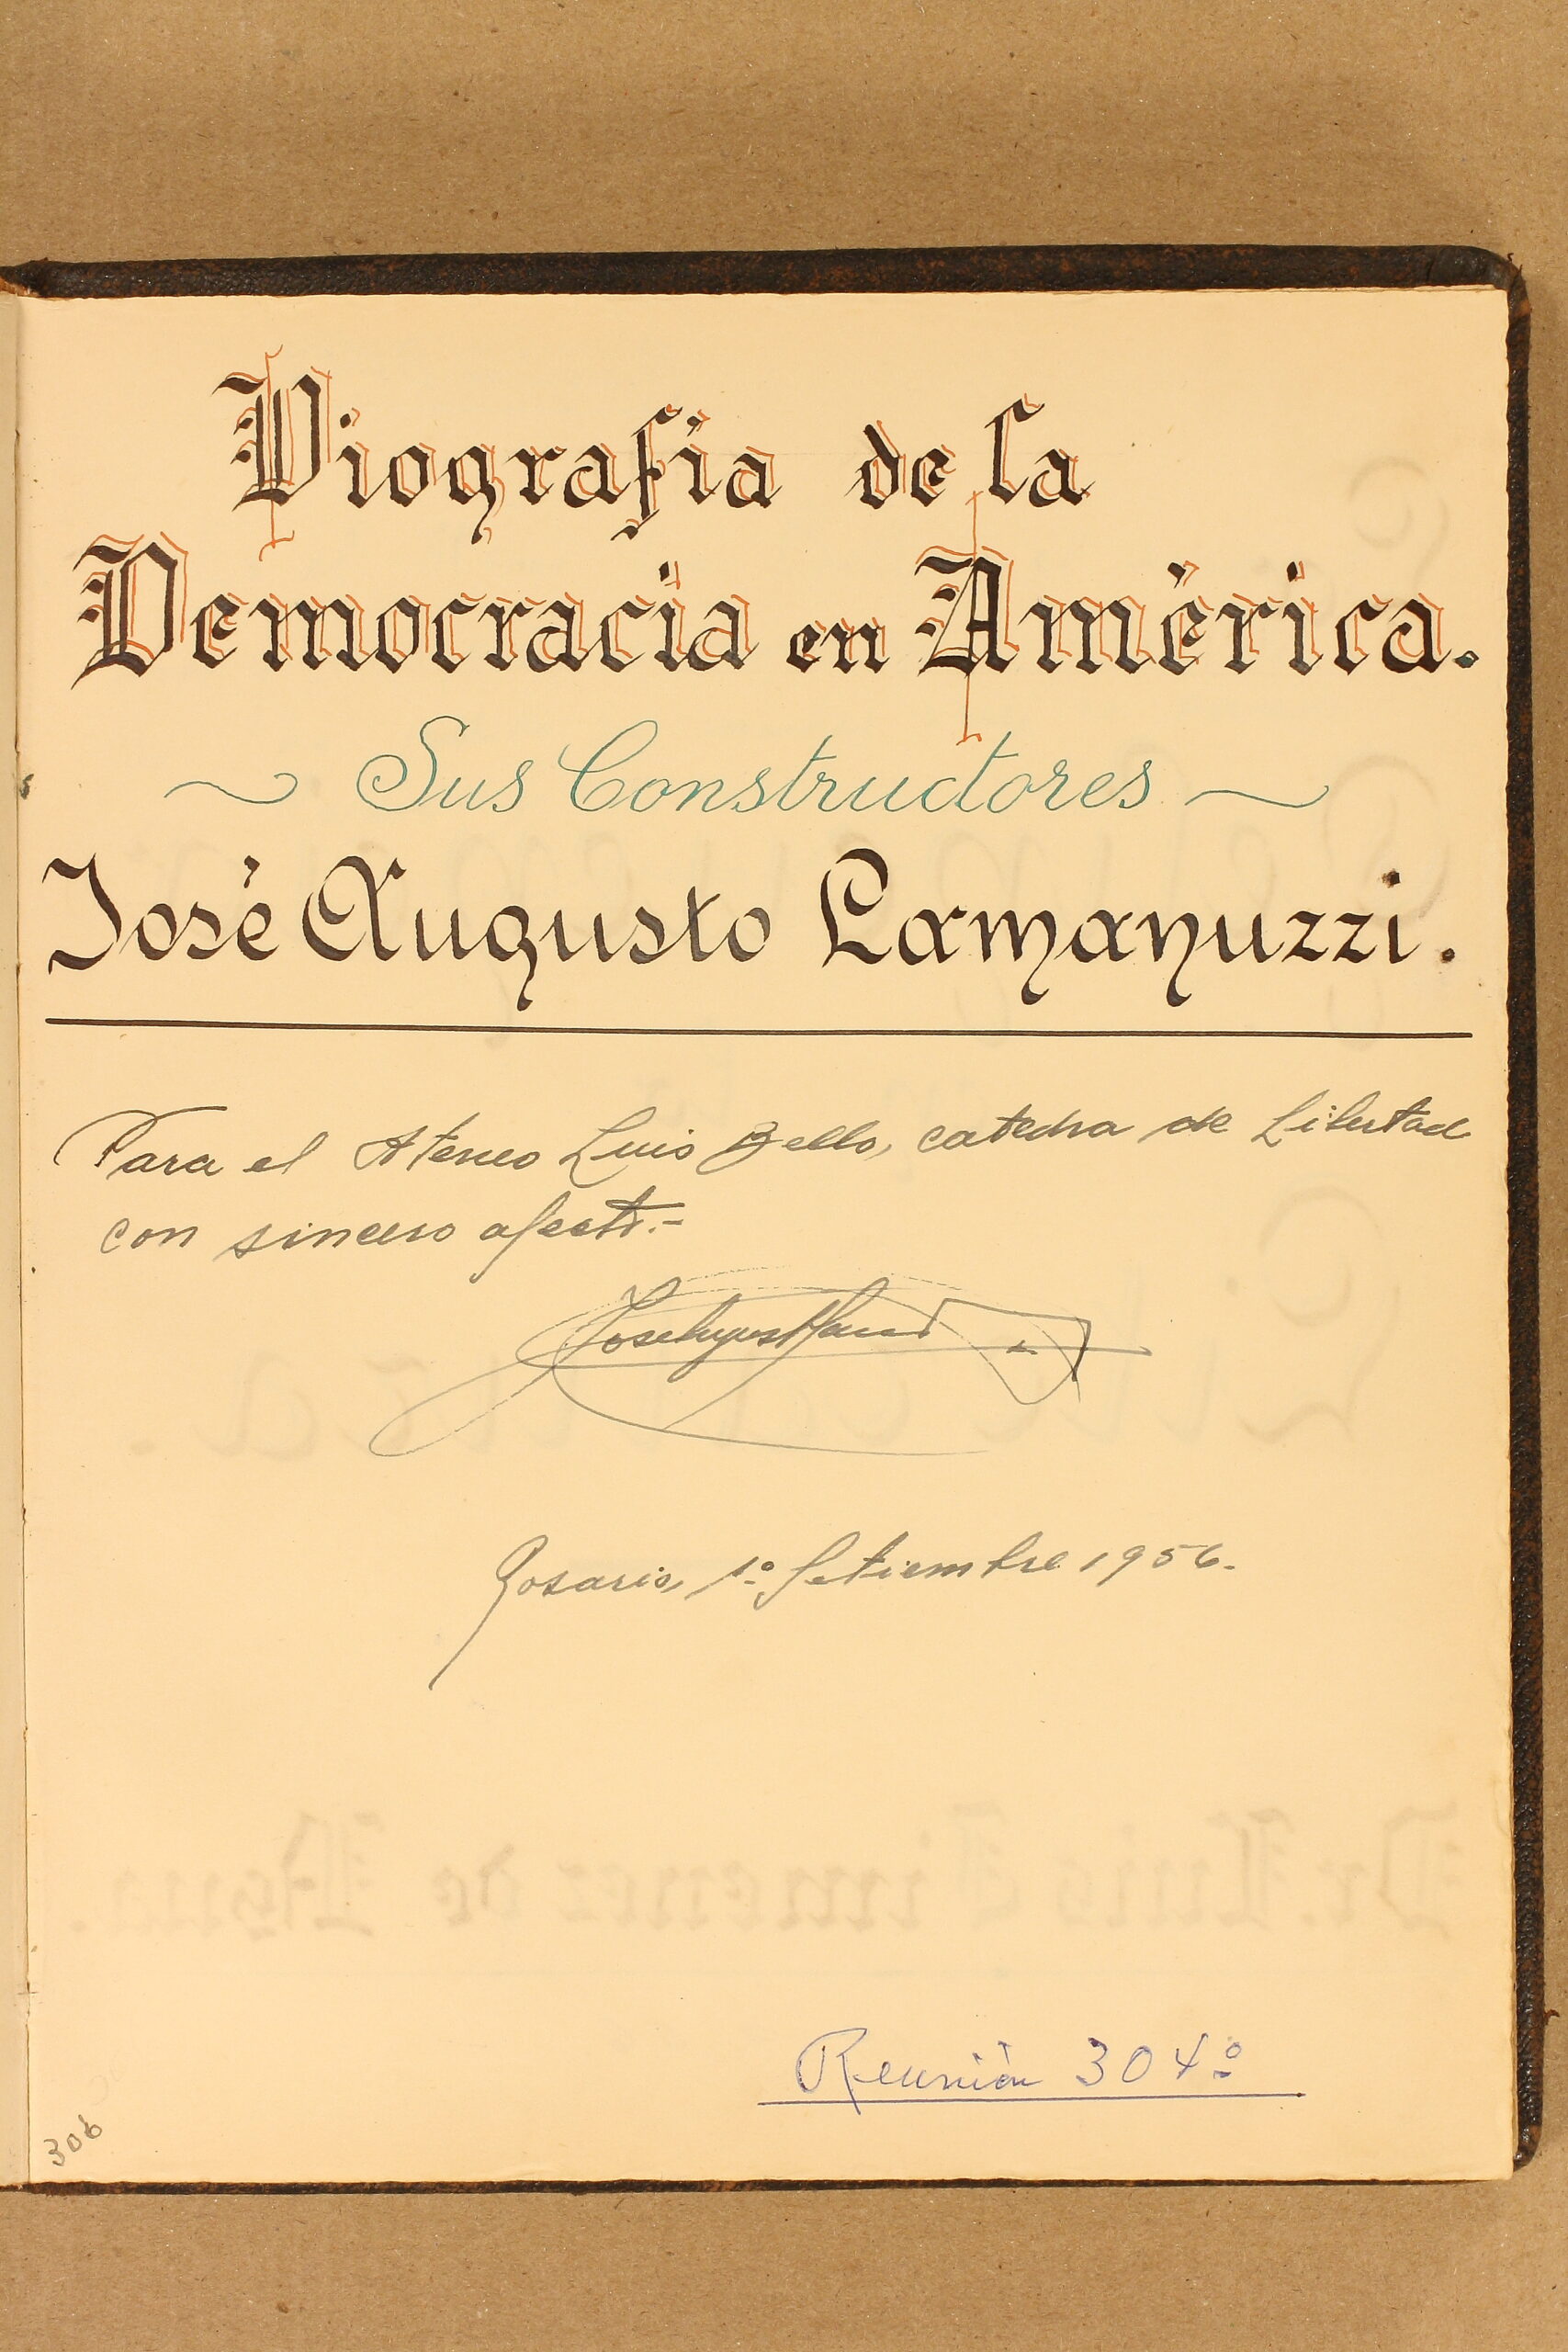 Biografia de la
Democracia en América.
~ Sus Constructores ~
José Augusto Lamanuzzi.
Para el Ateneo Luis Bello, catedra de Libertad
con sincero afecto.-
Rosario, 1º Setiembre 1956.
Reunión 304º
306